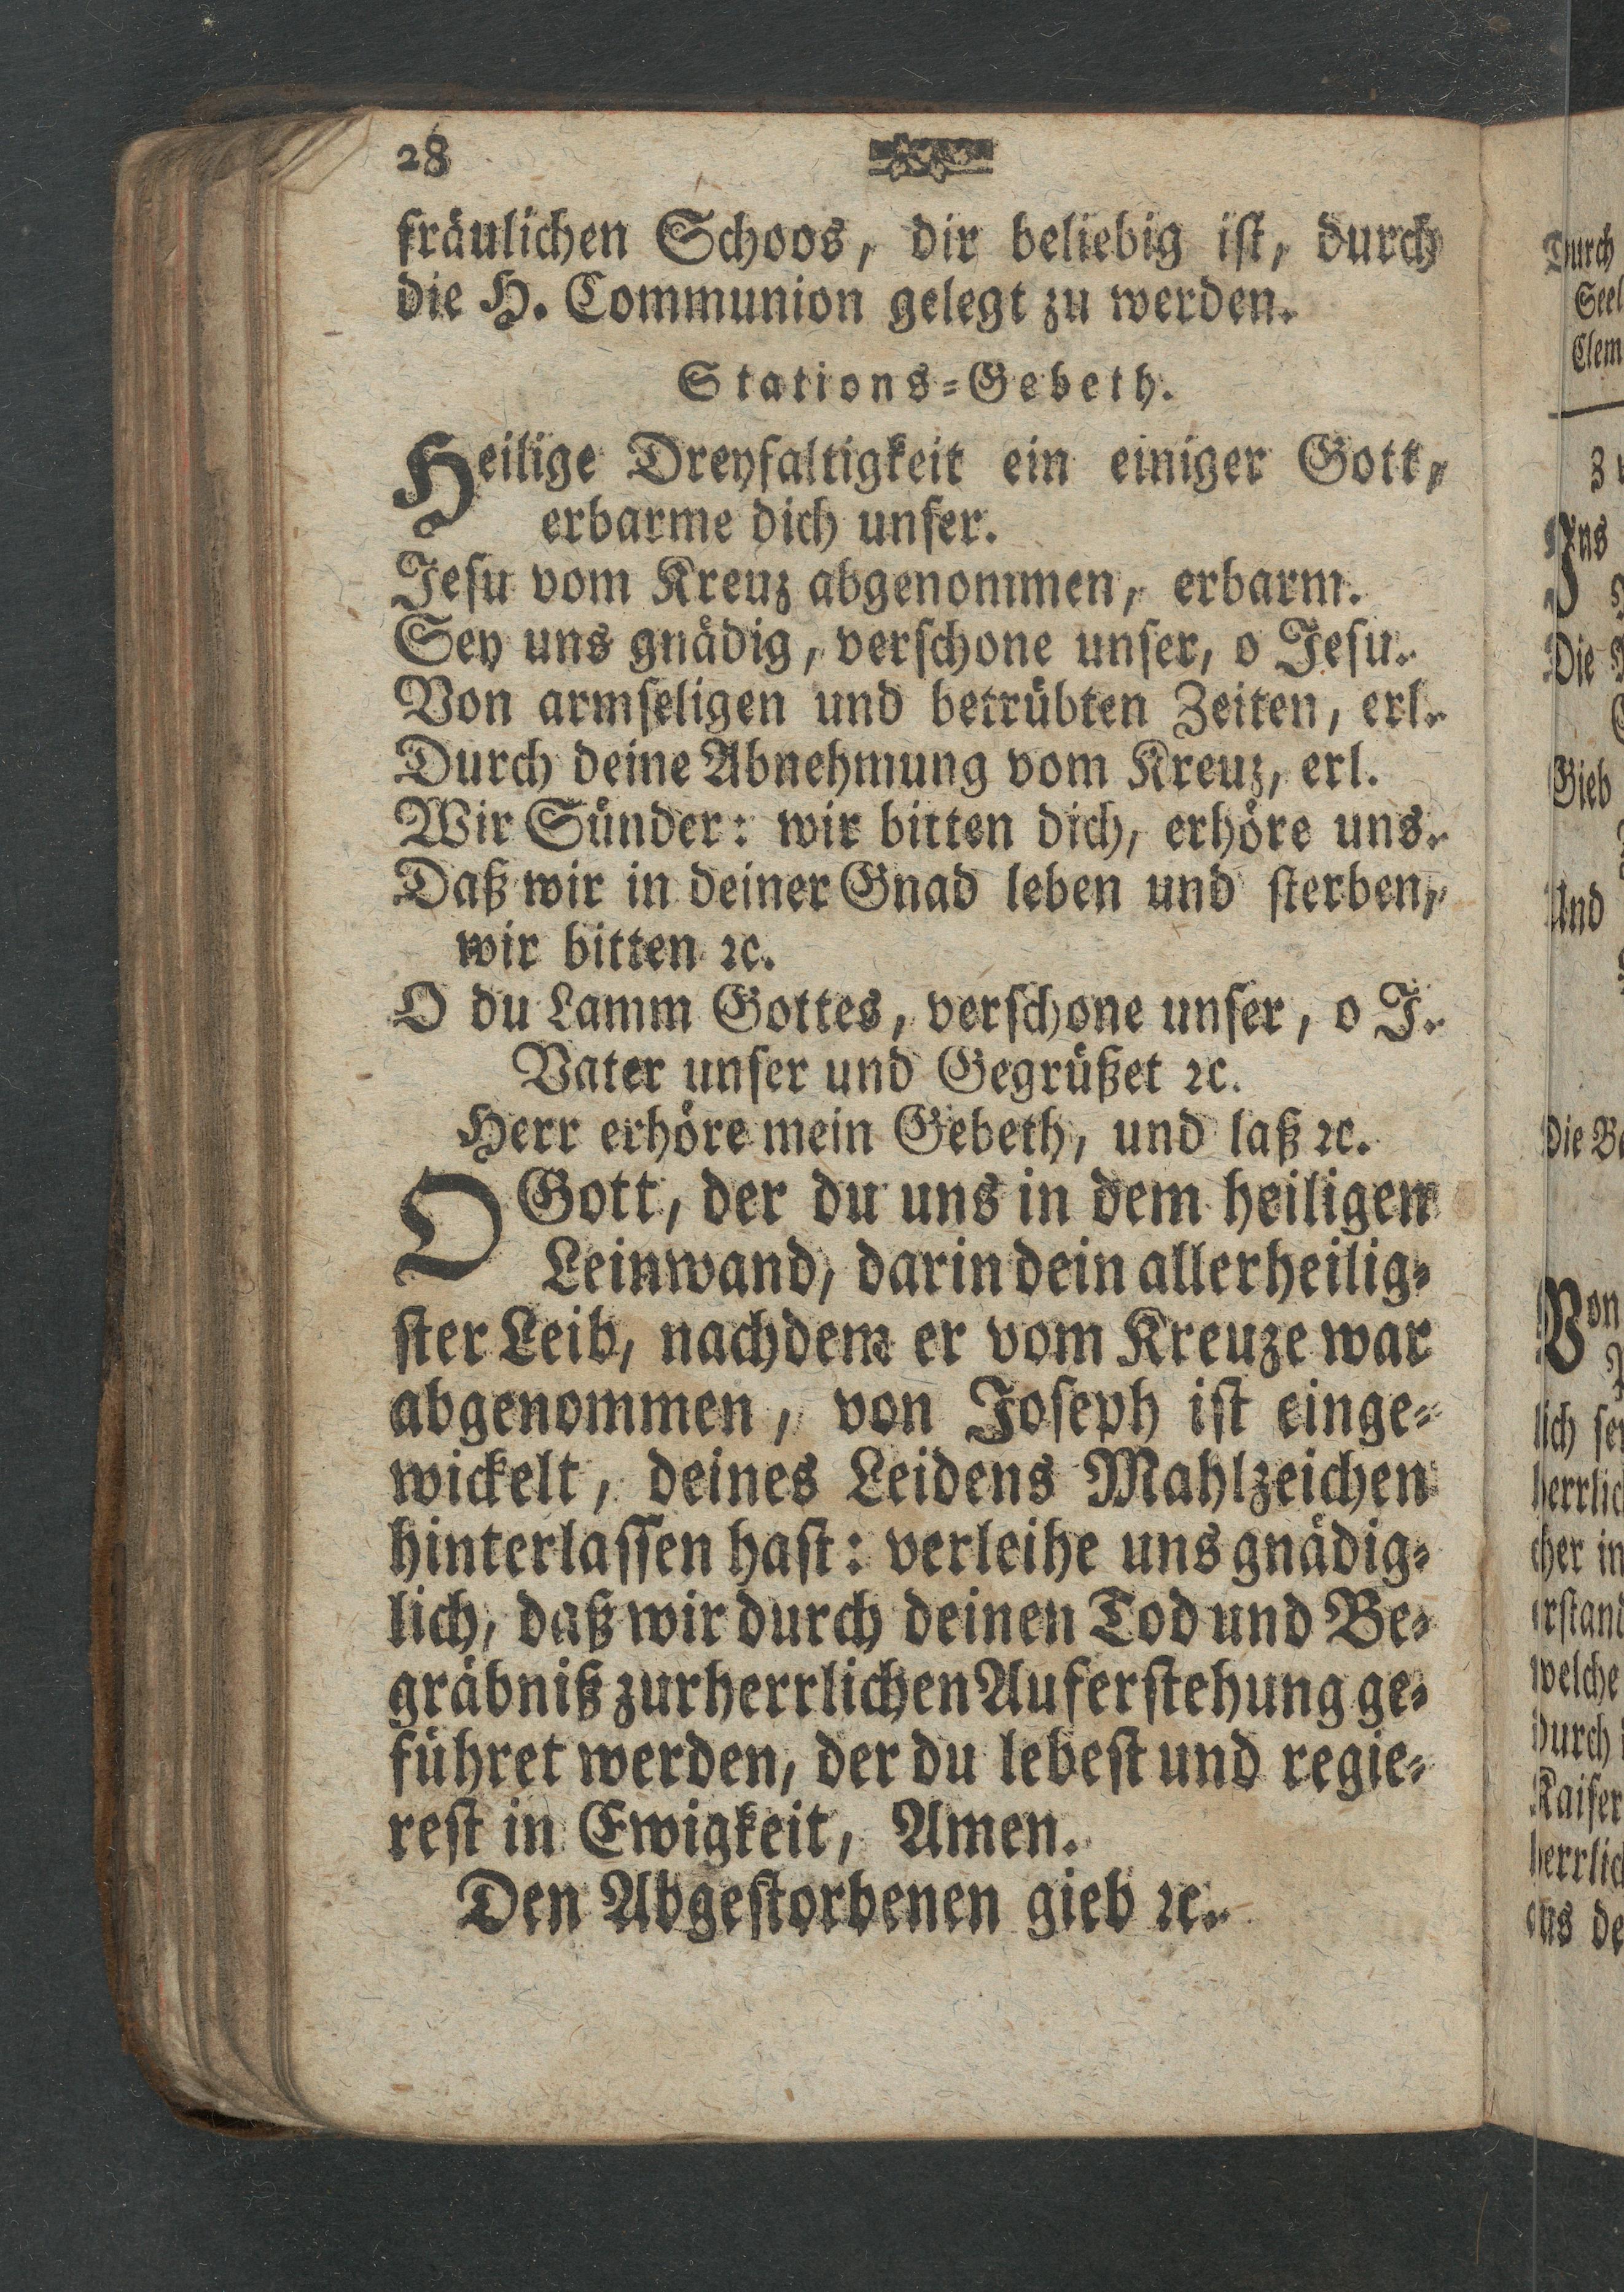 28
fräulichen Schoos, dir beliebig ist, durch
die H. Communion gelegt zu werden.
Stations=Gebeth.
Heilige Dreyfaltigkeit ein einiger Gott,
erbarme dich unser.
Jesu vom Kreuz abgenommen, erbarm.
Sey uns gnädig, verschone unser, o Jesu.
Von armseligen und betrübten Zeiten, erl.
Durch deine Abnehmung vom Kreuz, erl.
Wir Sünder: wir bitten dich, erhöre uns.
Daß wir in deiner Gnad leben und sterben,
wir bitten ꝛc.
O du Lamm Gottes, verschone unser, o J.
Vater unser und Gegrüßet ꝛc.
Herr erhöre mein Gebeth, und laß ꝛc.
O Gott, der du uns in dem heiligen
Leinwand, darin dein allerheilig=
ster Leib, nachdem er vom Kreuze war
abgenommen, von Joseph ist einge=
wickelt, deines Leidens Mahlzeichen
hinterlassen hast: verleihe uns gnädig=
lich, daß wir durch deinen Tod und Be=
gräbniß zur herrlichen Auferstehung ge=
führet werden, der du lebest und regie=
rest in Ewigkeit, Amen.
Den Abgestorbenen gieb ꝛc.
Durch
Seel
Clem
Die
Gieb
Und
Die
Von
lich
herrlic
cher in
erstand
welche
durch
Kaiser
herrlich
aus de